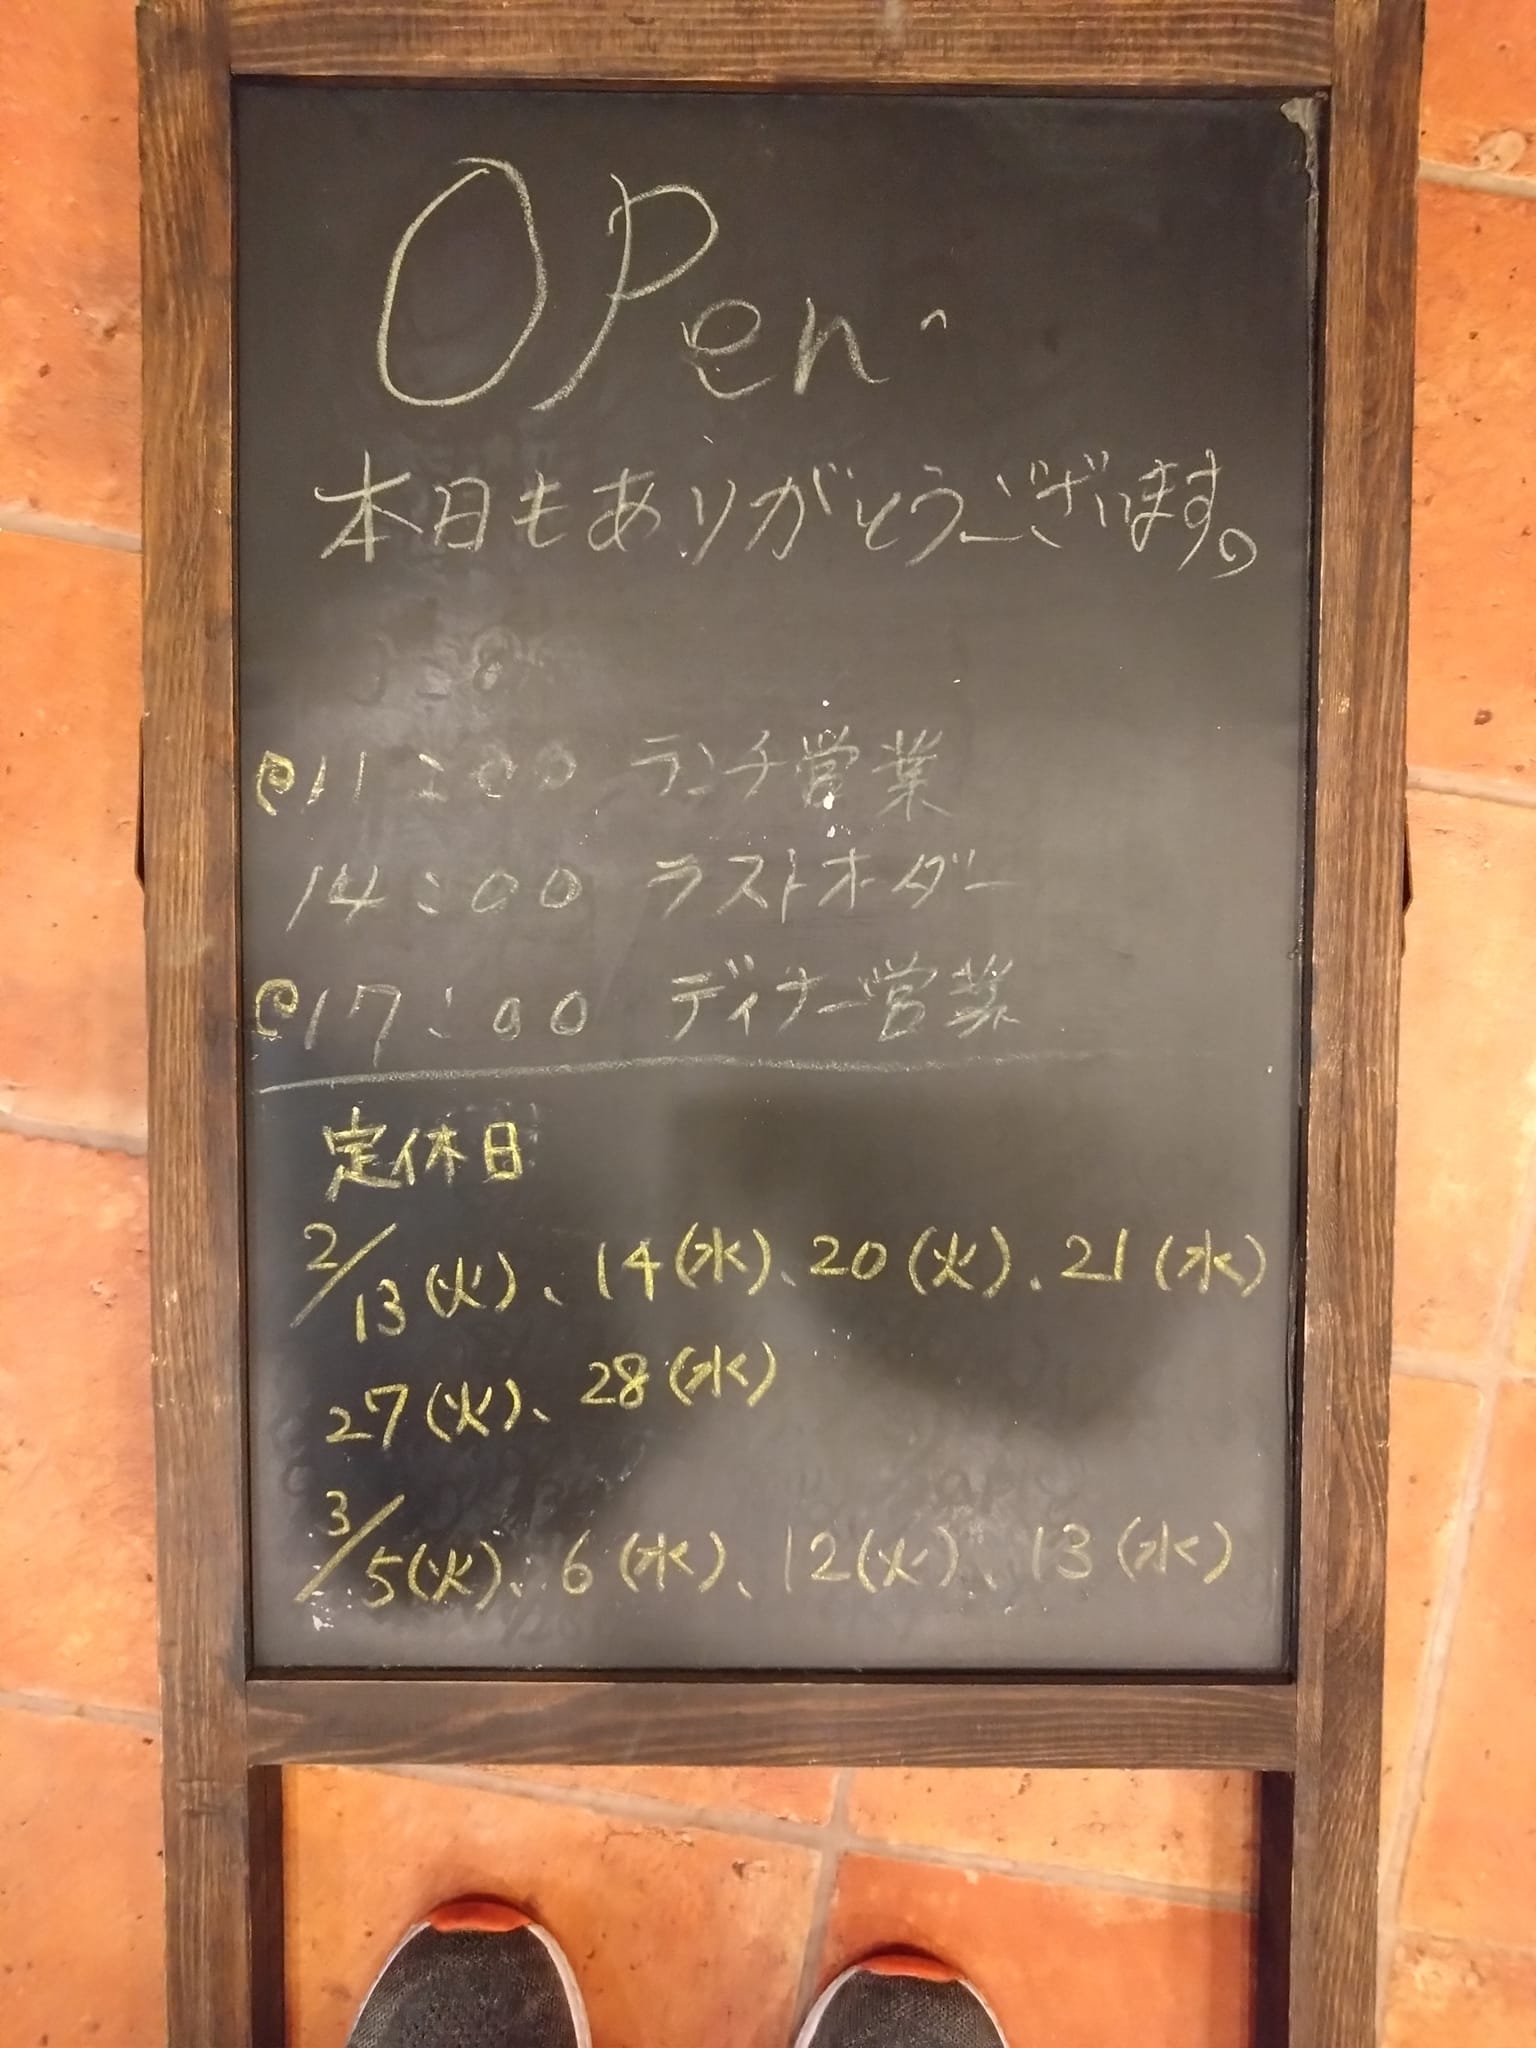 OPen
本日もありがとうございます。
11:00 ランチ営業
14:00 ラストオーダー
17:00 ディナー営業
定休日
2/13(火)、14(水)、20(火)、21(水)
27(火)、28(水)
3/5(火)、6(水)、12(火)、13(水)